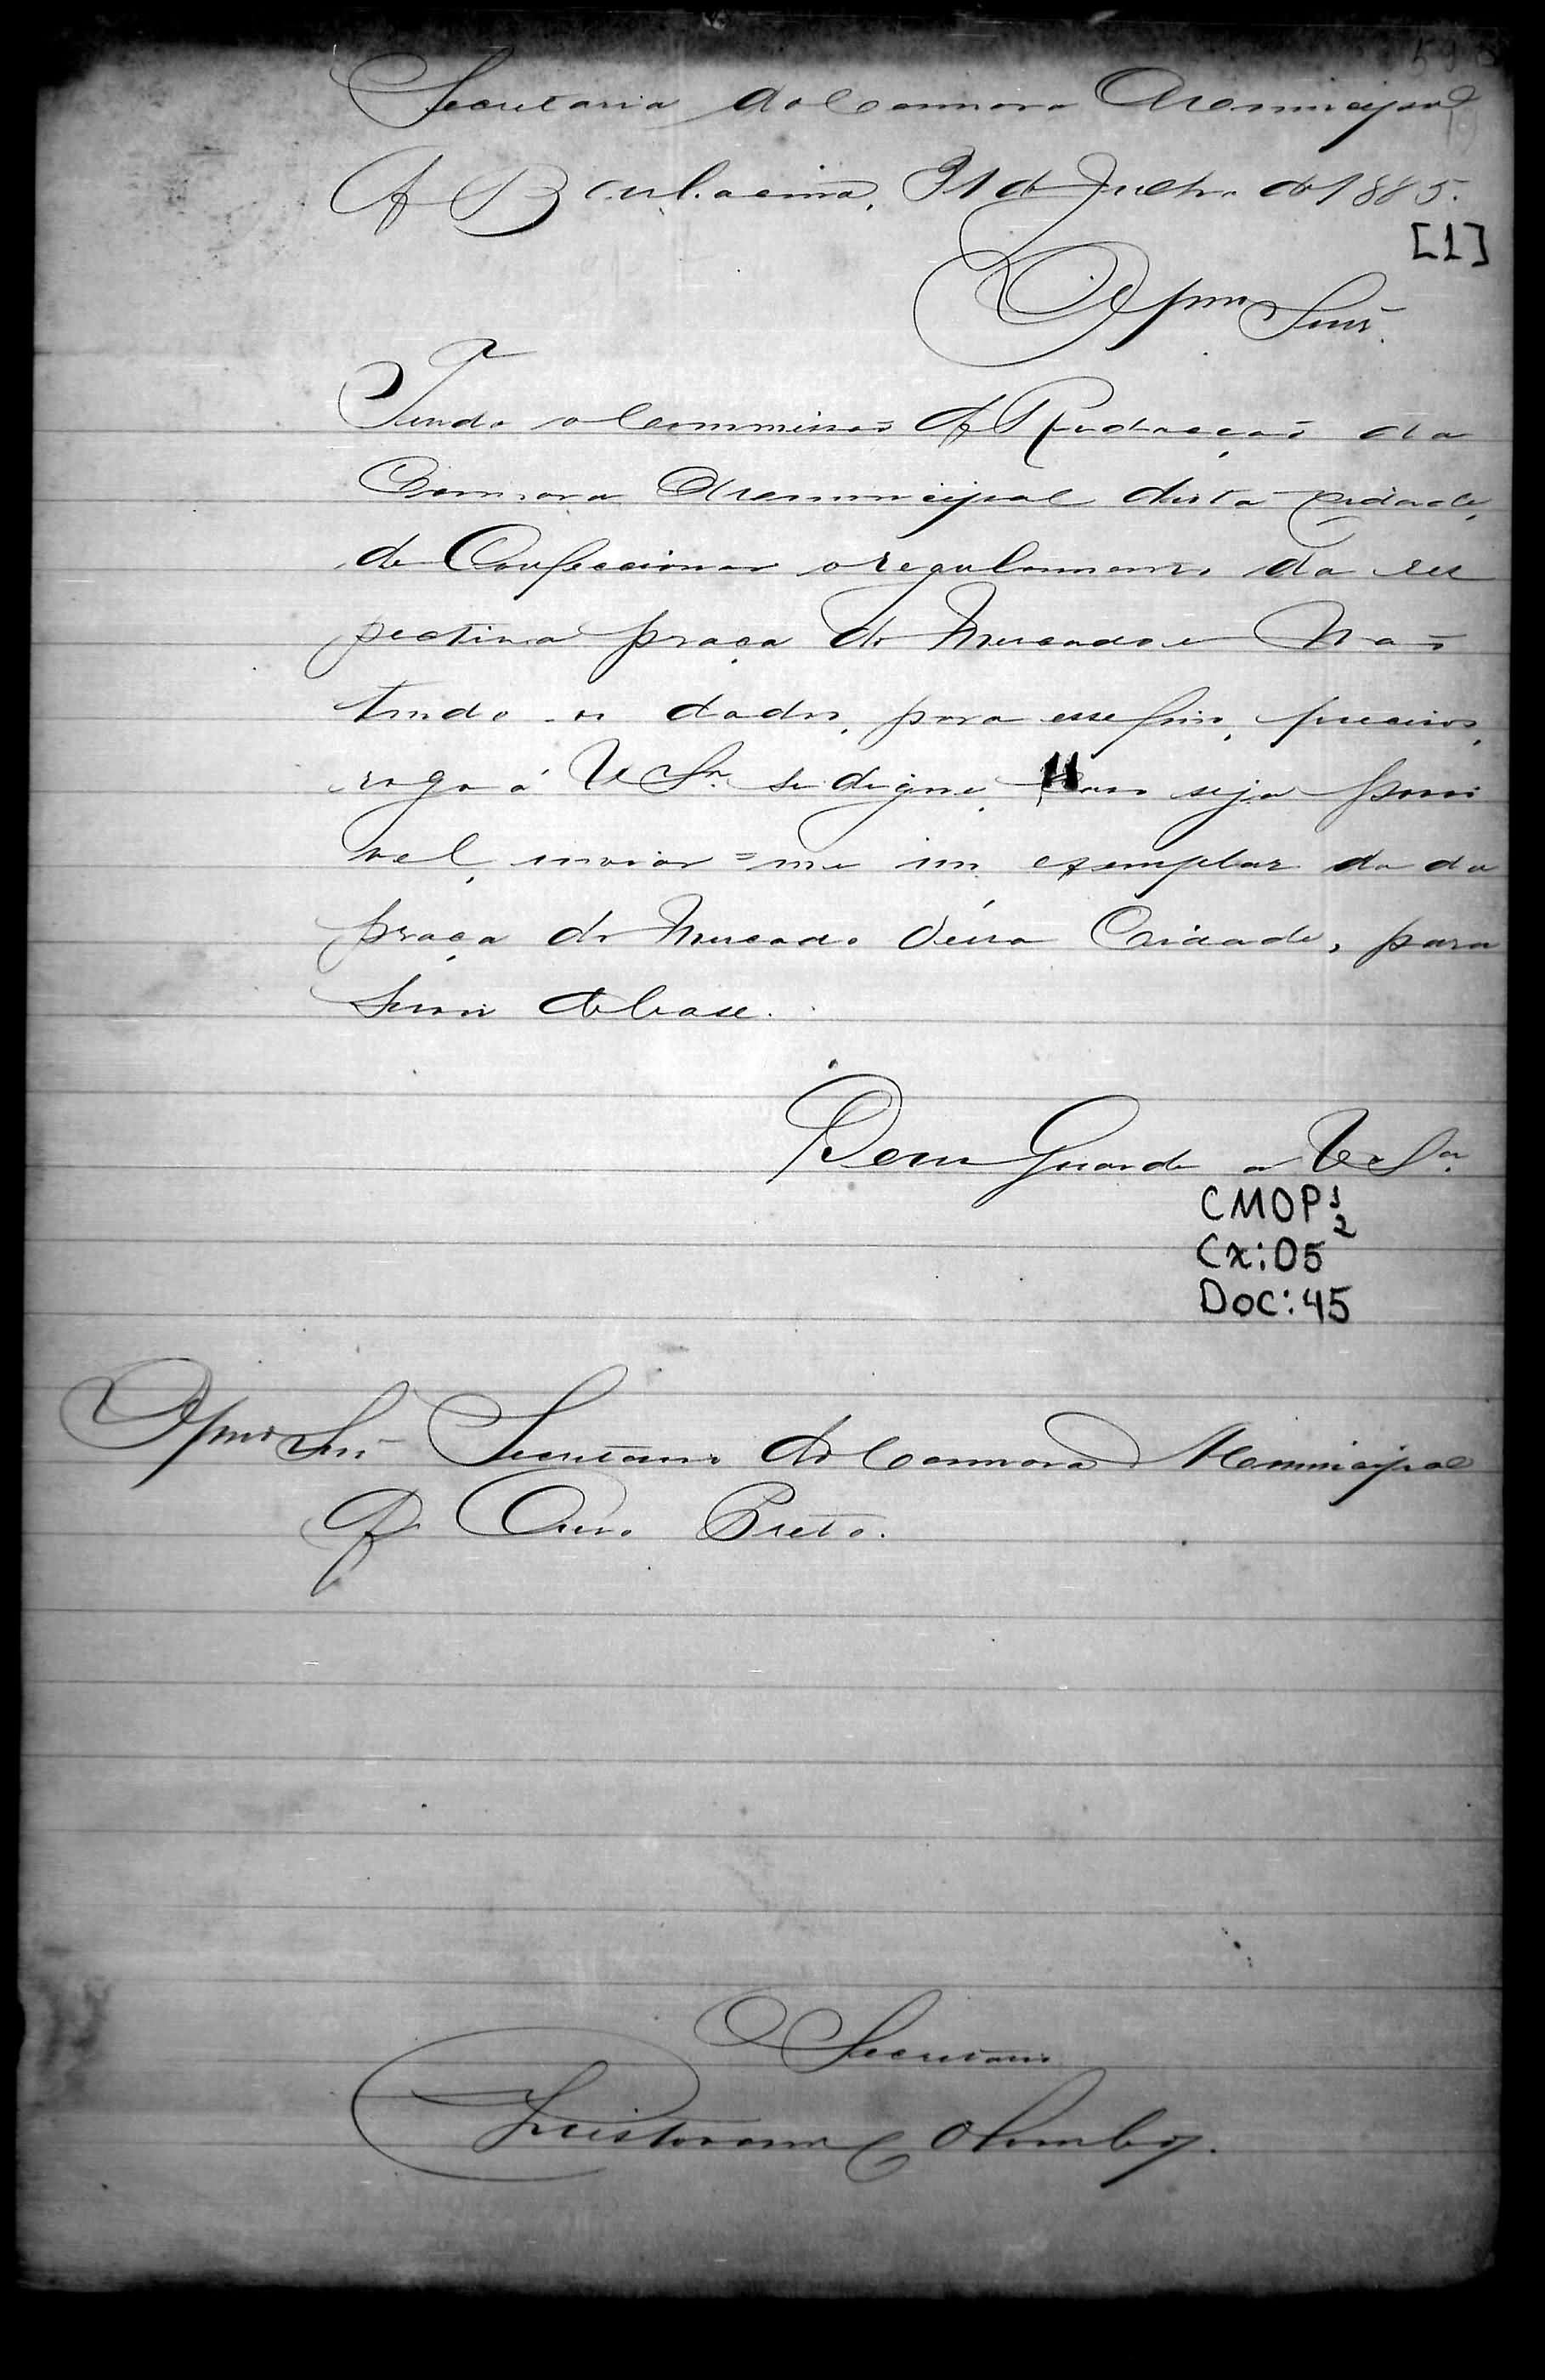 Secretaria da Camara Municipal
de Barbacena, 31 de Julho de 1885.
[1]
Illmo Snr.
Tendo a Commissão de Redacção da
Camara Municipal desta cidade,
de Confeccionar o regulamento da res
pectiva praça do Mercado e Não
tendo os dados, para esse fim, precisos,
rogo á V Sa. se digne, caso seja possi
vel, inviar=me um exemplar do da
praça do Mercado d'essa Cidade, para
servir de base.
Deus Guarde a V. Sa.
CMOP 1
2
Cx: 05
Doc: 45
Illmo Snr Secretario da Camara Municipal
de Ouro Preto.
O Secretario
Colombo.